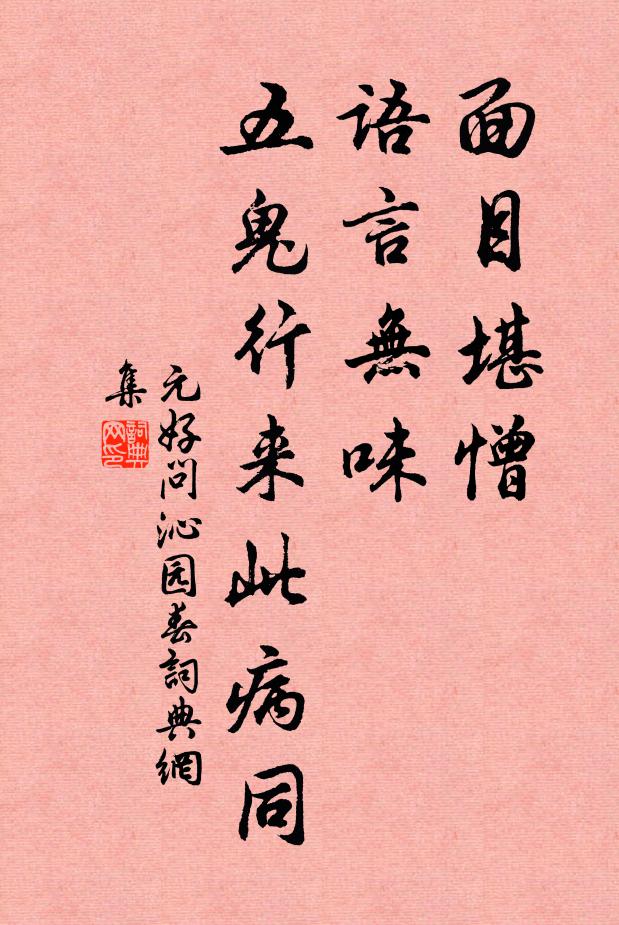 面目堪憎
语言無味
五鬼行来此病同
元好问沁园春詞典網
集
詞典
网印